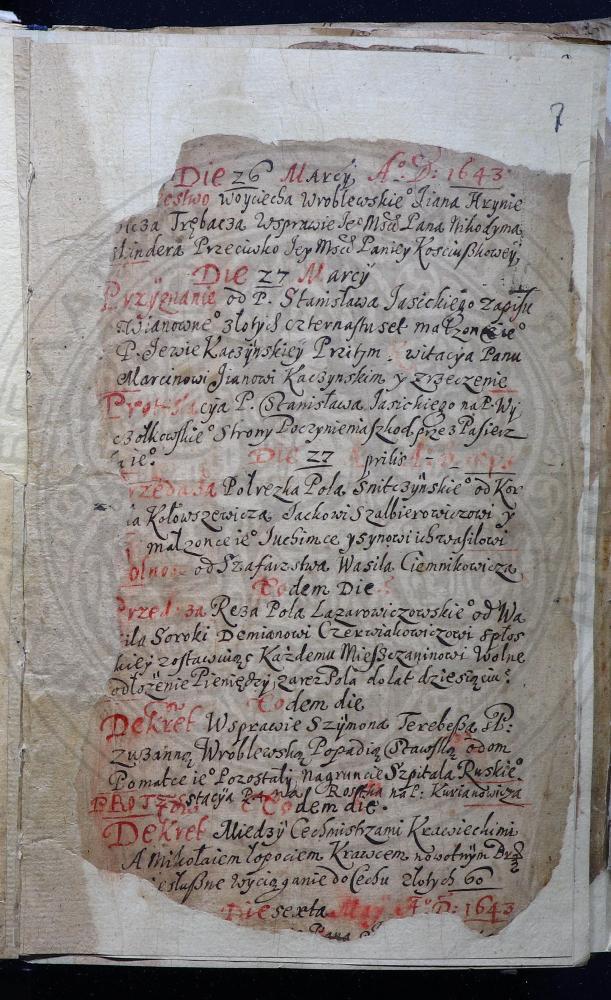 7
Die 26 Marcÿ A⁰: D: 1643
Woyciecha Wroblewskie⁰ Jiana Hrynie
Trębacza Wsprawie Je⁰ Mści Pana Nikodyma
Przeciwko Jey Mści Paniey Kosciuszkowey
Die 27 Marcÿ
Przÿznanie od P. Stanisława Jasickiego Zapisu
Wianowne⁰ złotych czternastu set małzonce ie⁰
P. Jewie Kaczÿnskieÿ Przitÿm Kwitacya Panu
Marcinowi Jianowi Kaczÿnskim y zrzeczenie
P. Stanisława Jasickiego na P. Wÿ
czółkowskie⁰ Strony Poczynienia szkod przez Pasierz
ie⁰
Die 27 Aprilis
Połrezka Pola Snitczÿnskie⁰ od Kor
Kołowszewicza Jackowi Szalbierowiczowi ÿ
małzonce ie⁰ Juchimce y synowi ich Wasilowi
od Szafarstwa Wasila Ciemnikowicza
Eodem Die
Reza Pola Lazarowiczowskie⁰ od Wa
sila Soroki Demianowi Czerwiakowiczowi spłos
kieÿ zostawuiąc Każdemu Mieszczaninowi Wolne
odłożenie Pieniędzÿ za rez Pola do lat dziesiąciu
Eodem die
Dekret Wsprawie Szÿmona Terebesza S P:
Zuzanną Wroblewską Popadią Stawską o dom
Pomatce ie⁰ Pozostały Nagruncie Szpitala Ruskie⁰
PROTE stacya Pana Rostka na P: Kurianowicza
Eodem die
Dekret Miedzÿ Cechmistrzami Krawieckimi
A Mikołaiem Łopociem Krawcem nowotnÿm
niesłuszne wyciąganie do Cechu złotych 60
Die sexta Maÿ A⁰: D: 1643
Pana